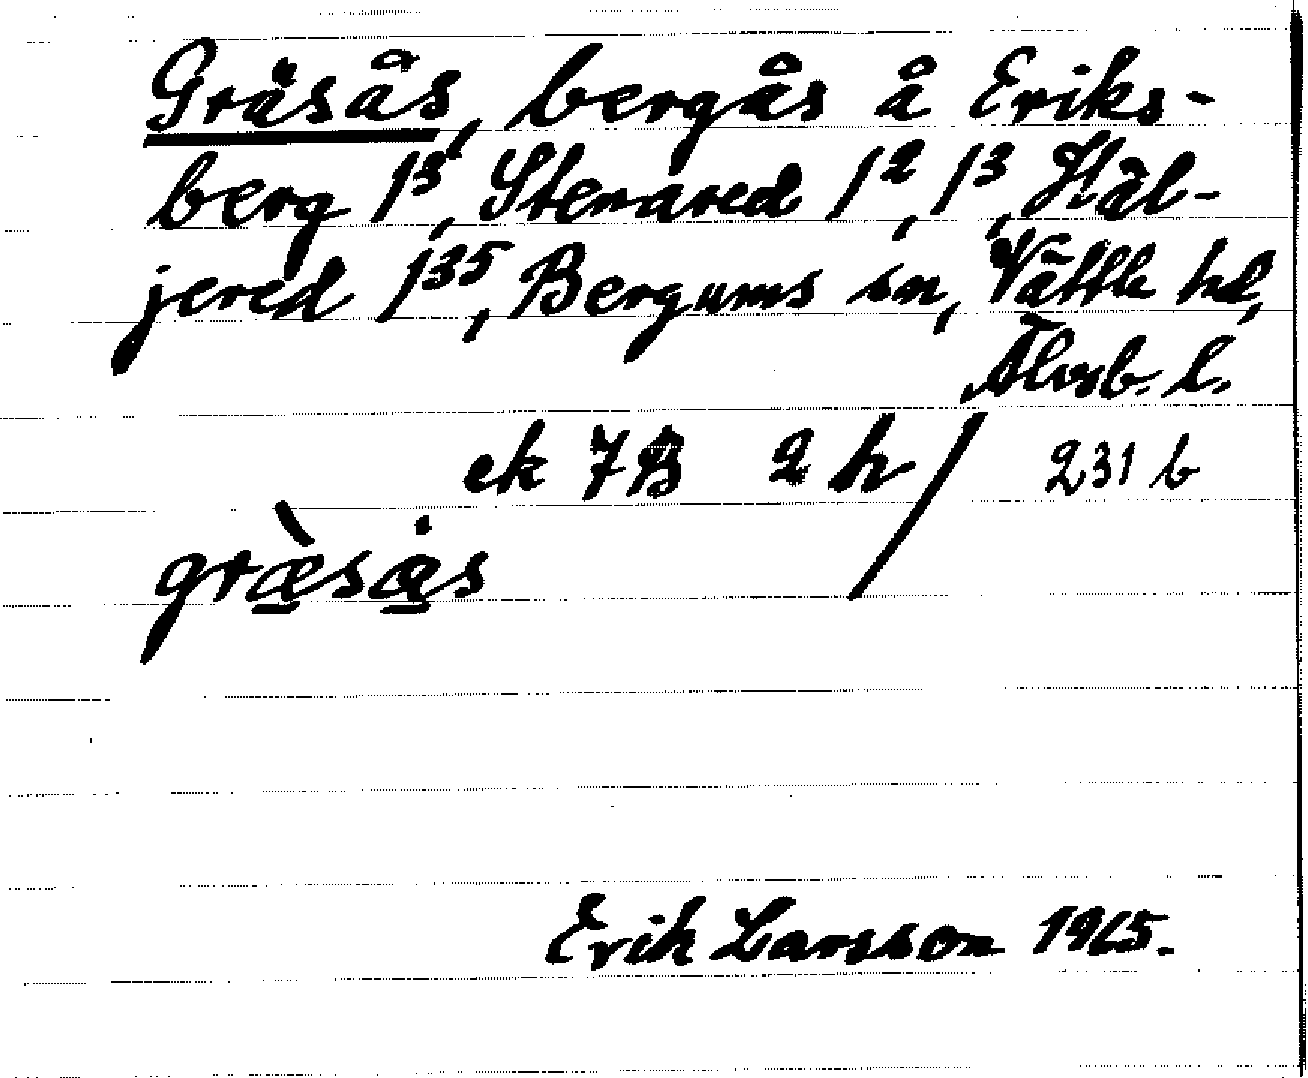 Gräsås, bergås å Eriks-
berg 1³, Stenared 1², 1³, Häl-
jered 1³⁵, Bergums sn, Vättle hd,
Älvsb. l.
ek 7B 2h / 231 b
græ̀sås
Erik Larsson 1965.